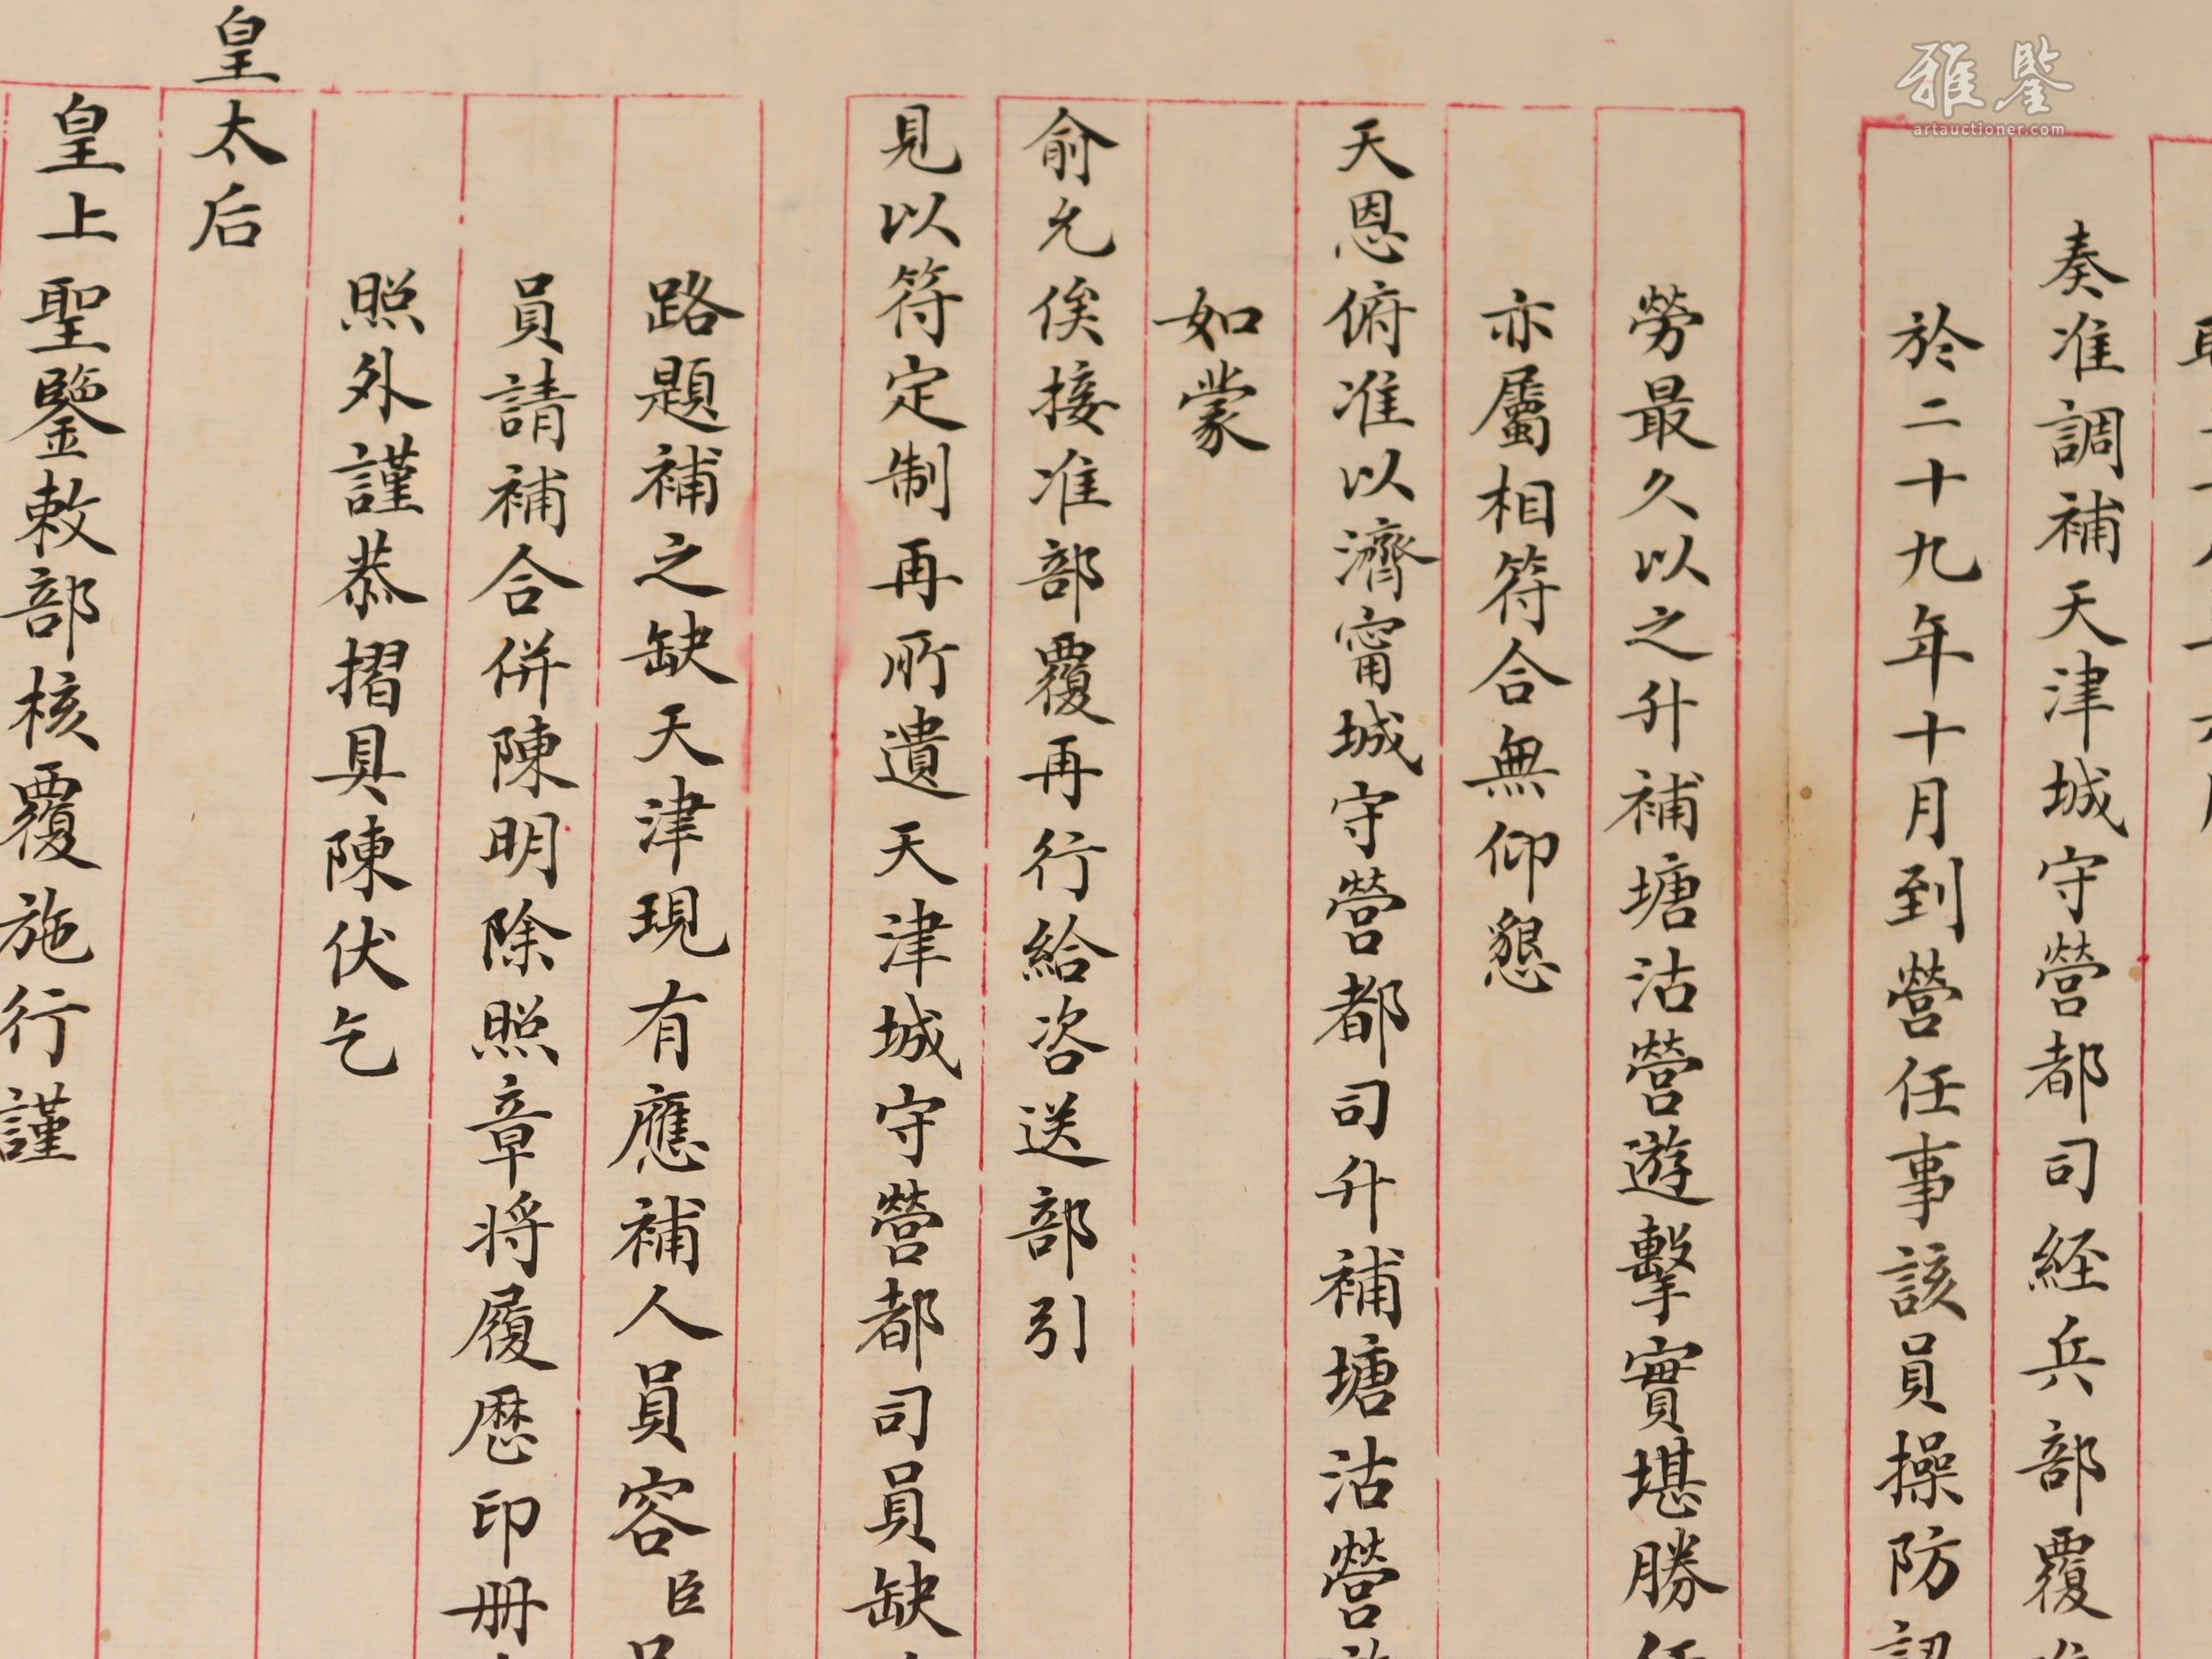 奏准調補天津城守營都司経兵部覆
於二十九年十月到營任事該員操防
勞最久以之升補塘沽營遊擊實堪勝
亦屬相符合無仰懇
天恩俯准以濟甯城守營都司升補塘沽營
如蒙
俞允俟接准部覆再行給咨送部引
見以符定制再所遺天津城守營都司員缺
路題補之缺天津現有應補人員容臣
員請補合併陳明除照章将履歴印册
照外謹恭摺具陳伏乞
皇太后
皇上聖鑒敕部核覆施行謹
雅鑒
artauctioner.com